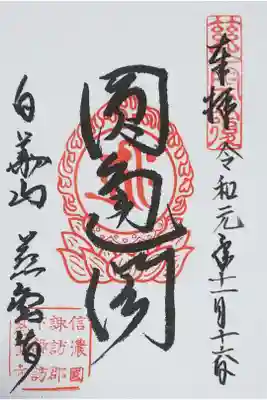 奉拝 令和元年十一月十六日
圓通閣
白華山 慈雲寺
信濃國
諏訪郡